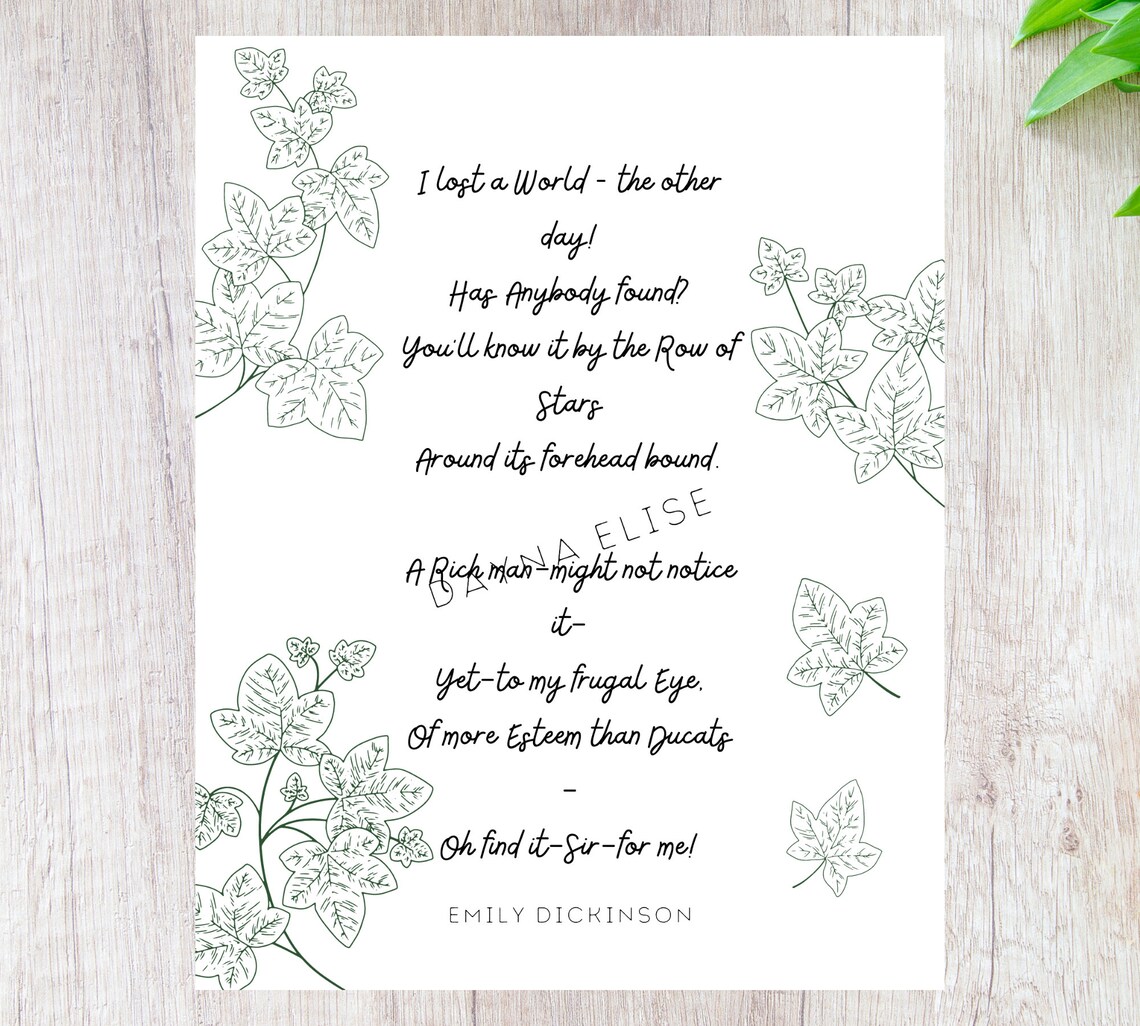 I lost a World - the other
day!
Has Anybody found?
You'll know it by the Row of
Stars
Around its forehead bound.
DAINA ELISE
A Rich man-might not notice
it-
Yet-to my frugal Eye,
Of more Esteem than Ducats
-
Oh find it-Sir-for me!
EMILY DICKINSON